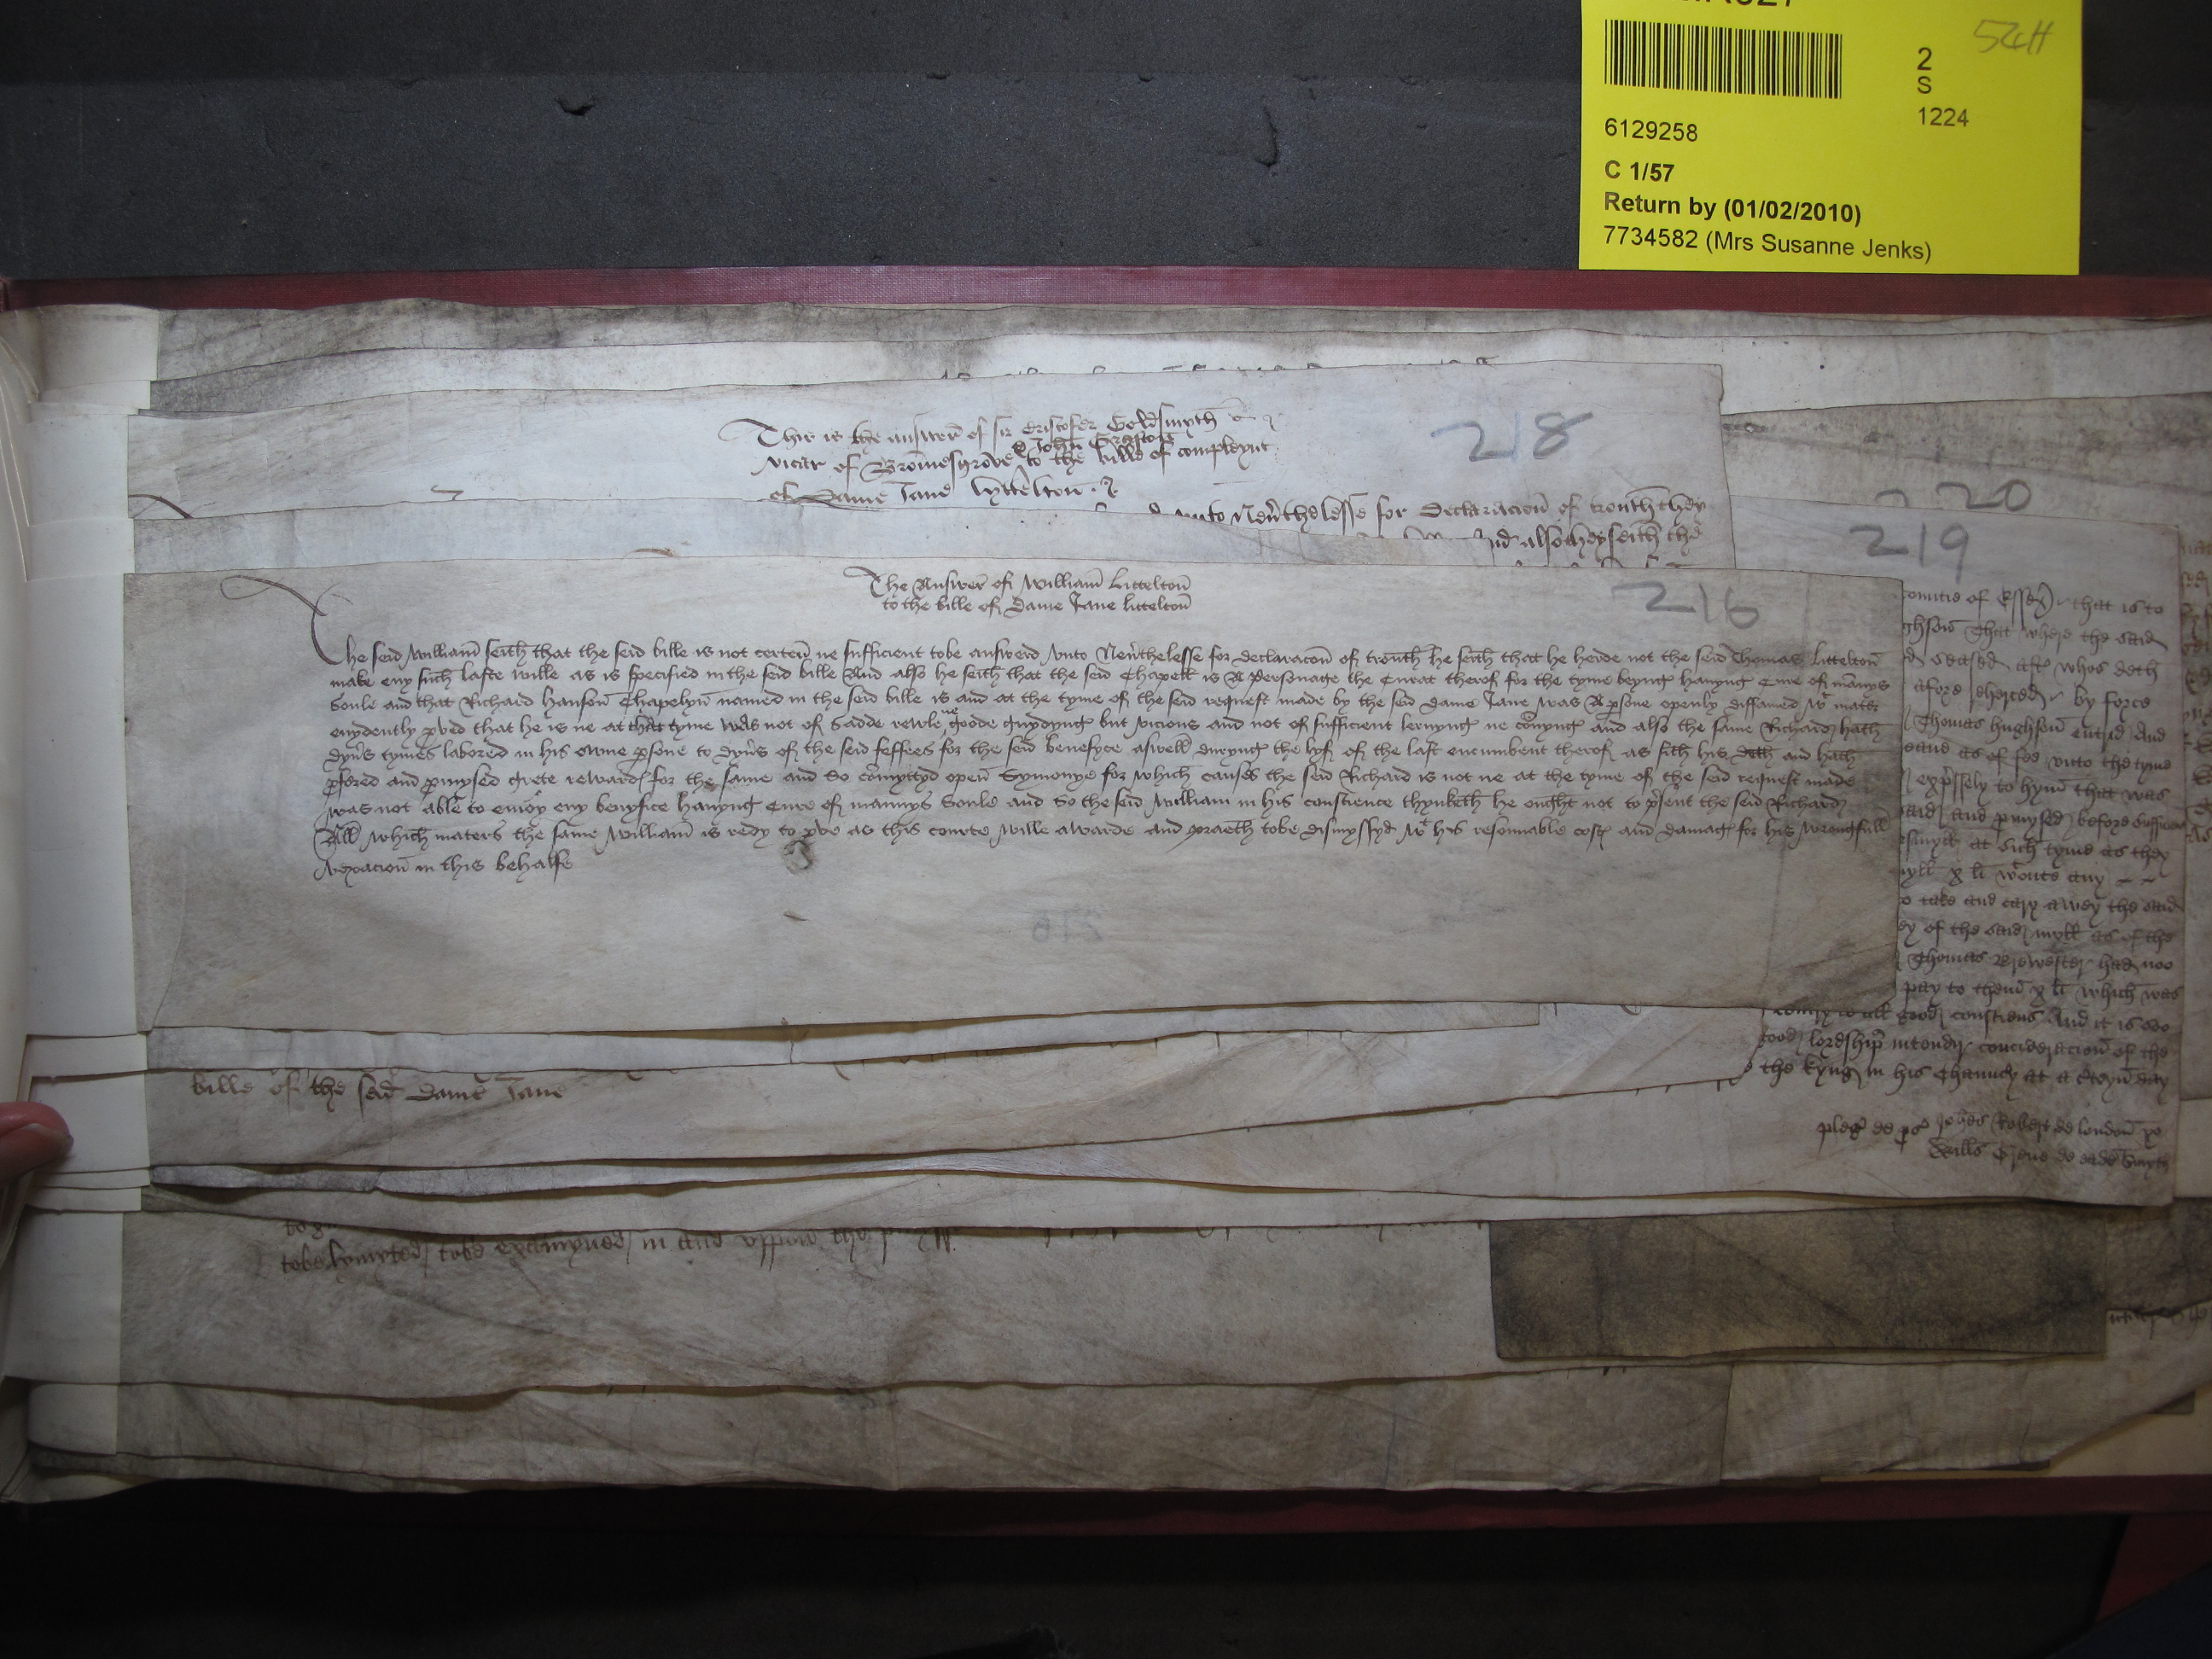 54H
2
S
1224
6129258
C 1/57
Return by (01/02/2010)
7734582 (Mrs Susanne Jenks)
218
This is the answer of sir Cristofer Goldsmyth
& John
vicar of Bromesgrove to the bille of compleynt
of Dame Jane lyttelton
unto Nev'thelesse for declaracion of trouth they
And also they seith that
220
219
216
The Answer of William Littelton
to the bille of Dame Jane littelton
The seid William seith that the seid bille is not certen ne sufficient tobe answerd unto Nev'thelesse for declaracon of trouth he seith that he herde not the seid Thomas Littelton
make eny such laste wille as is specified in the seid bille And also he seith that the seid Chapell is A personage the Curat therof for the tyme beyng havyng Cure of mannys
Soule and that Richard Hanson Chapelyn named in the seid bille is and at the tyme of the seid request made by the seid Dame Jane was A p'sone openly diffamed wt mater
evydently p'ved that he is ne at that tyme was not of Sadde rewle ne goode guydyng but vicious and not of sufficient lernyng ne conyng and also the same Richard hath
dyv's tymes labored in his owne p'sone to dyv's of the seid feffees for the seid benefyce aswell duryng the lyf of the last encumbent therof as sith his deth and hath
p'fered and p'mysed grete reward for the same and so comyttyd open Symonye for which causes the seid Richard is not ne at the tyme of the seid request made
was not able to enioy eny benyfice havyng Cure of mannys Soule and So the seid William in his constience thynketh he ought not to p'sent the seid Richard
All which maters the same William is redy to p've as this courte wille awarde and praeth tobe dismyssyd wt his resonnable cost and damag for his wrongfull
vexacion in this behalfe
that is to
That where the said
after whos deth
afore reherced by force
Thomas hughson entrid And
as of fee unto the tyme
exp'ssely to hym that was
and p'mysed before
at sich tyme as they
x li w'oute any
take and cary awey the said
of the said myll as of the
Thomas Brewester had noo
pay to them x li which was
to all good constiens And it is soo
good lordship
the kyng in his Chauncery at a c'teyn day
pleg' de p's' Joh'es Robert de london
Will's de ead' Smyth
bille of the seid Dame Jane
tobe lymyted tobe examyned in and uppon the